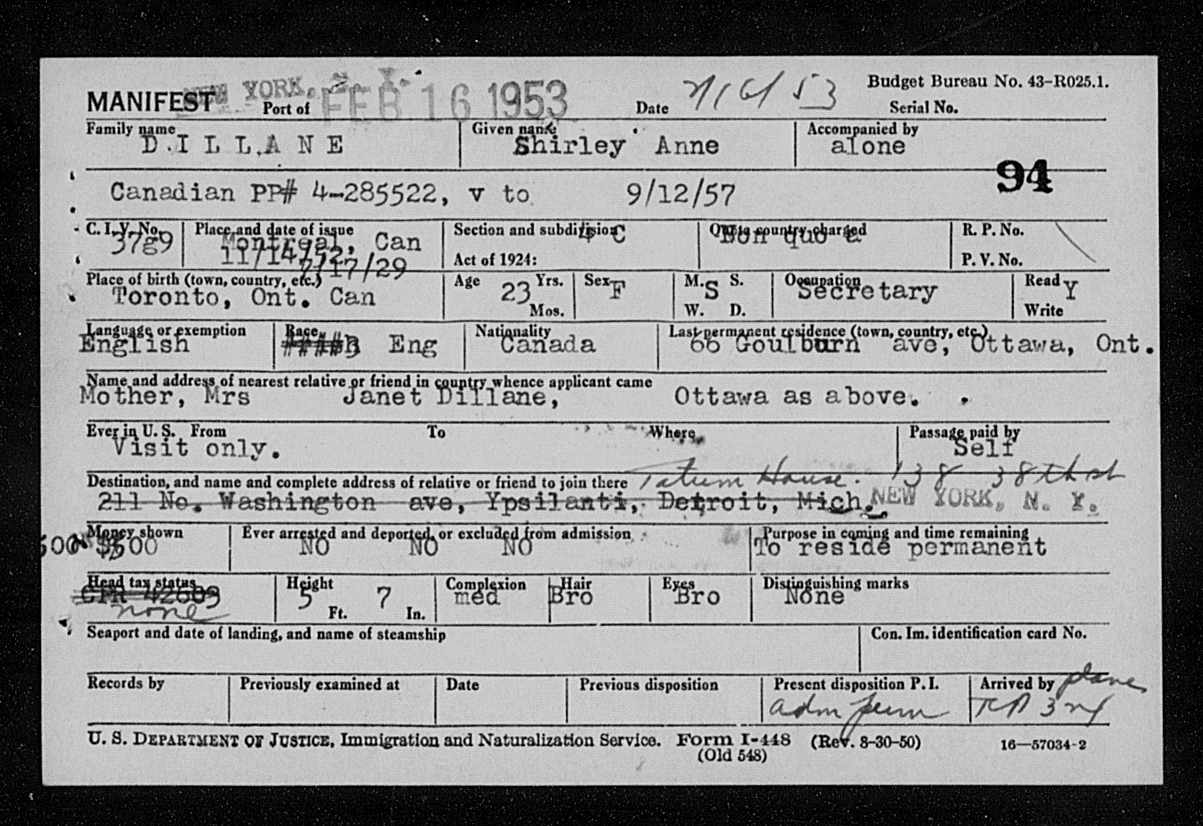 MANIFEST NEW YORK, N. Y. Port of FEB 16 1953 Date 2/16/53 Budget Bureau No. 43-R025.1.
Serial No.
Family name DILLANE Given name Shirley Anne Accompanied by alone
94
Canadian PP# 4-285522, v to 9/12/57
C. I. V. No. 37g9 Place and date of issue Montreal, Can Section and subdivision 4 C Quota country charged Non quo a R. P. No.
11/14/52 Act of 1924: P. V. No.
7/17/29
Place of birth (town, country, etc.) Toronto, Ont. Can Age 23 Yrs. Mos. Sex F M. S. W. D. S Occupation Secretary Read Y Write
Language or exemption English Race Eng Nationality Canada Last permanent residence (town, country, etc.) 66 Goulburn ave, Ottawa, Ont.
Name and address of nearest relative or friend in country whence applicant came
Mother, Mrs Janet Dillane, Ottawa as above.
Ever in U. S. From To Where Passage paid by
Visit only. Self
Destination, and name and complete address of relative or friend to join there Tatum House. 138 38th st
211 No. Washington ave, Ypsilanti, Detroit, Mich. NEW YORK, N. Y.
Money shown Ever arrested and deported, or excluded from admission Purpose in coming and time remaining
500 NO NO NO To reside permanent
Head tax status Height Complexion Hair Eyes Distinguishing marks
none 5 Ft. 7 In. med Bro Bro None
Seaport and date of landing, and name of steamship Con. Im. identification card No.
Records by Previously examined at Date Previous disposition Present disposition P. I. Arrived by plane
adm perm
U. S. DEPARTMENT OF JUSTICE, Immigration and Naturalization Service. Form I-448 (Rev. 8-30-50) 16—57034-2
(Old 548)